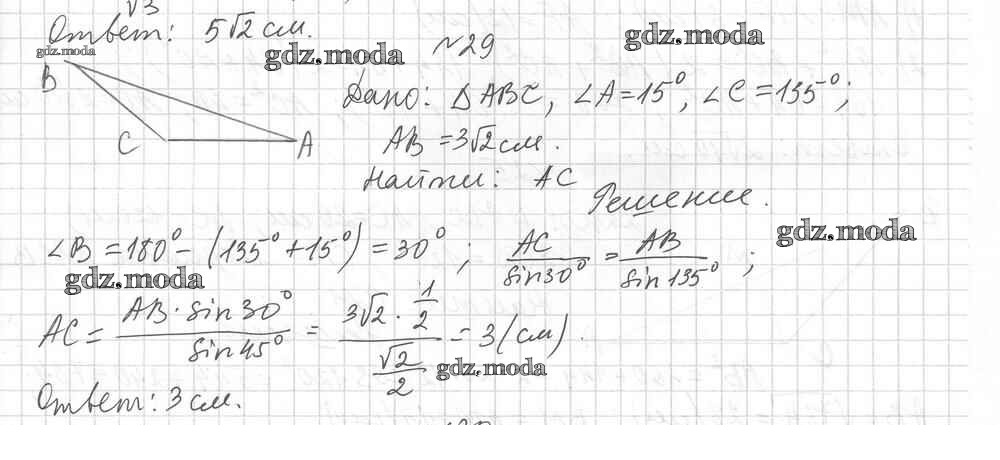 √3
Ответ: 5√2 см.
gdz.moda
gdz.moda
№29
gdz.moda
B
C
A
Дано: △ABC, ∠A=15°, ∠C=135°;
AB=3√2 см.
Найти: AC
Решение.
∠B=180°-(135°+15°)=30°; AC/sin30° = AB/sin135°;
gdz.moda
gdz.moda
AC = AB·sin30°/sin45° = (3√2·1/2)/(√2/2) = 3(см).
gdz.moda
Ответ: 3 см.